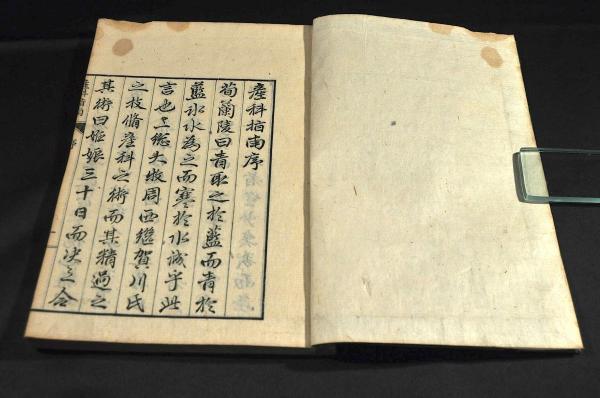 産科指南序
荀蘭陵曰青取之於藍而青於
藍氷水為之而寒於水誠乎此
言也上総大牧周西継賀川氏
之技脩産科之術而其精過之
其術曰妊娠三十日而决之合